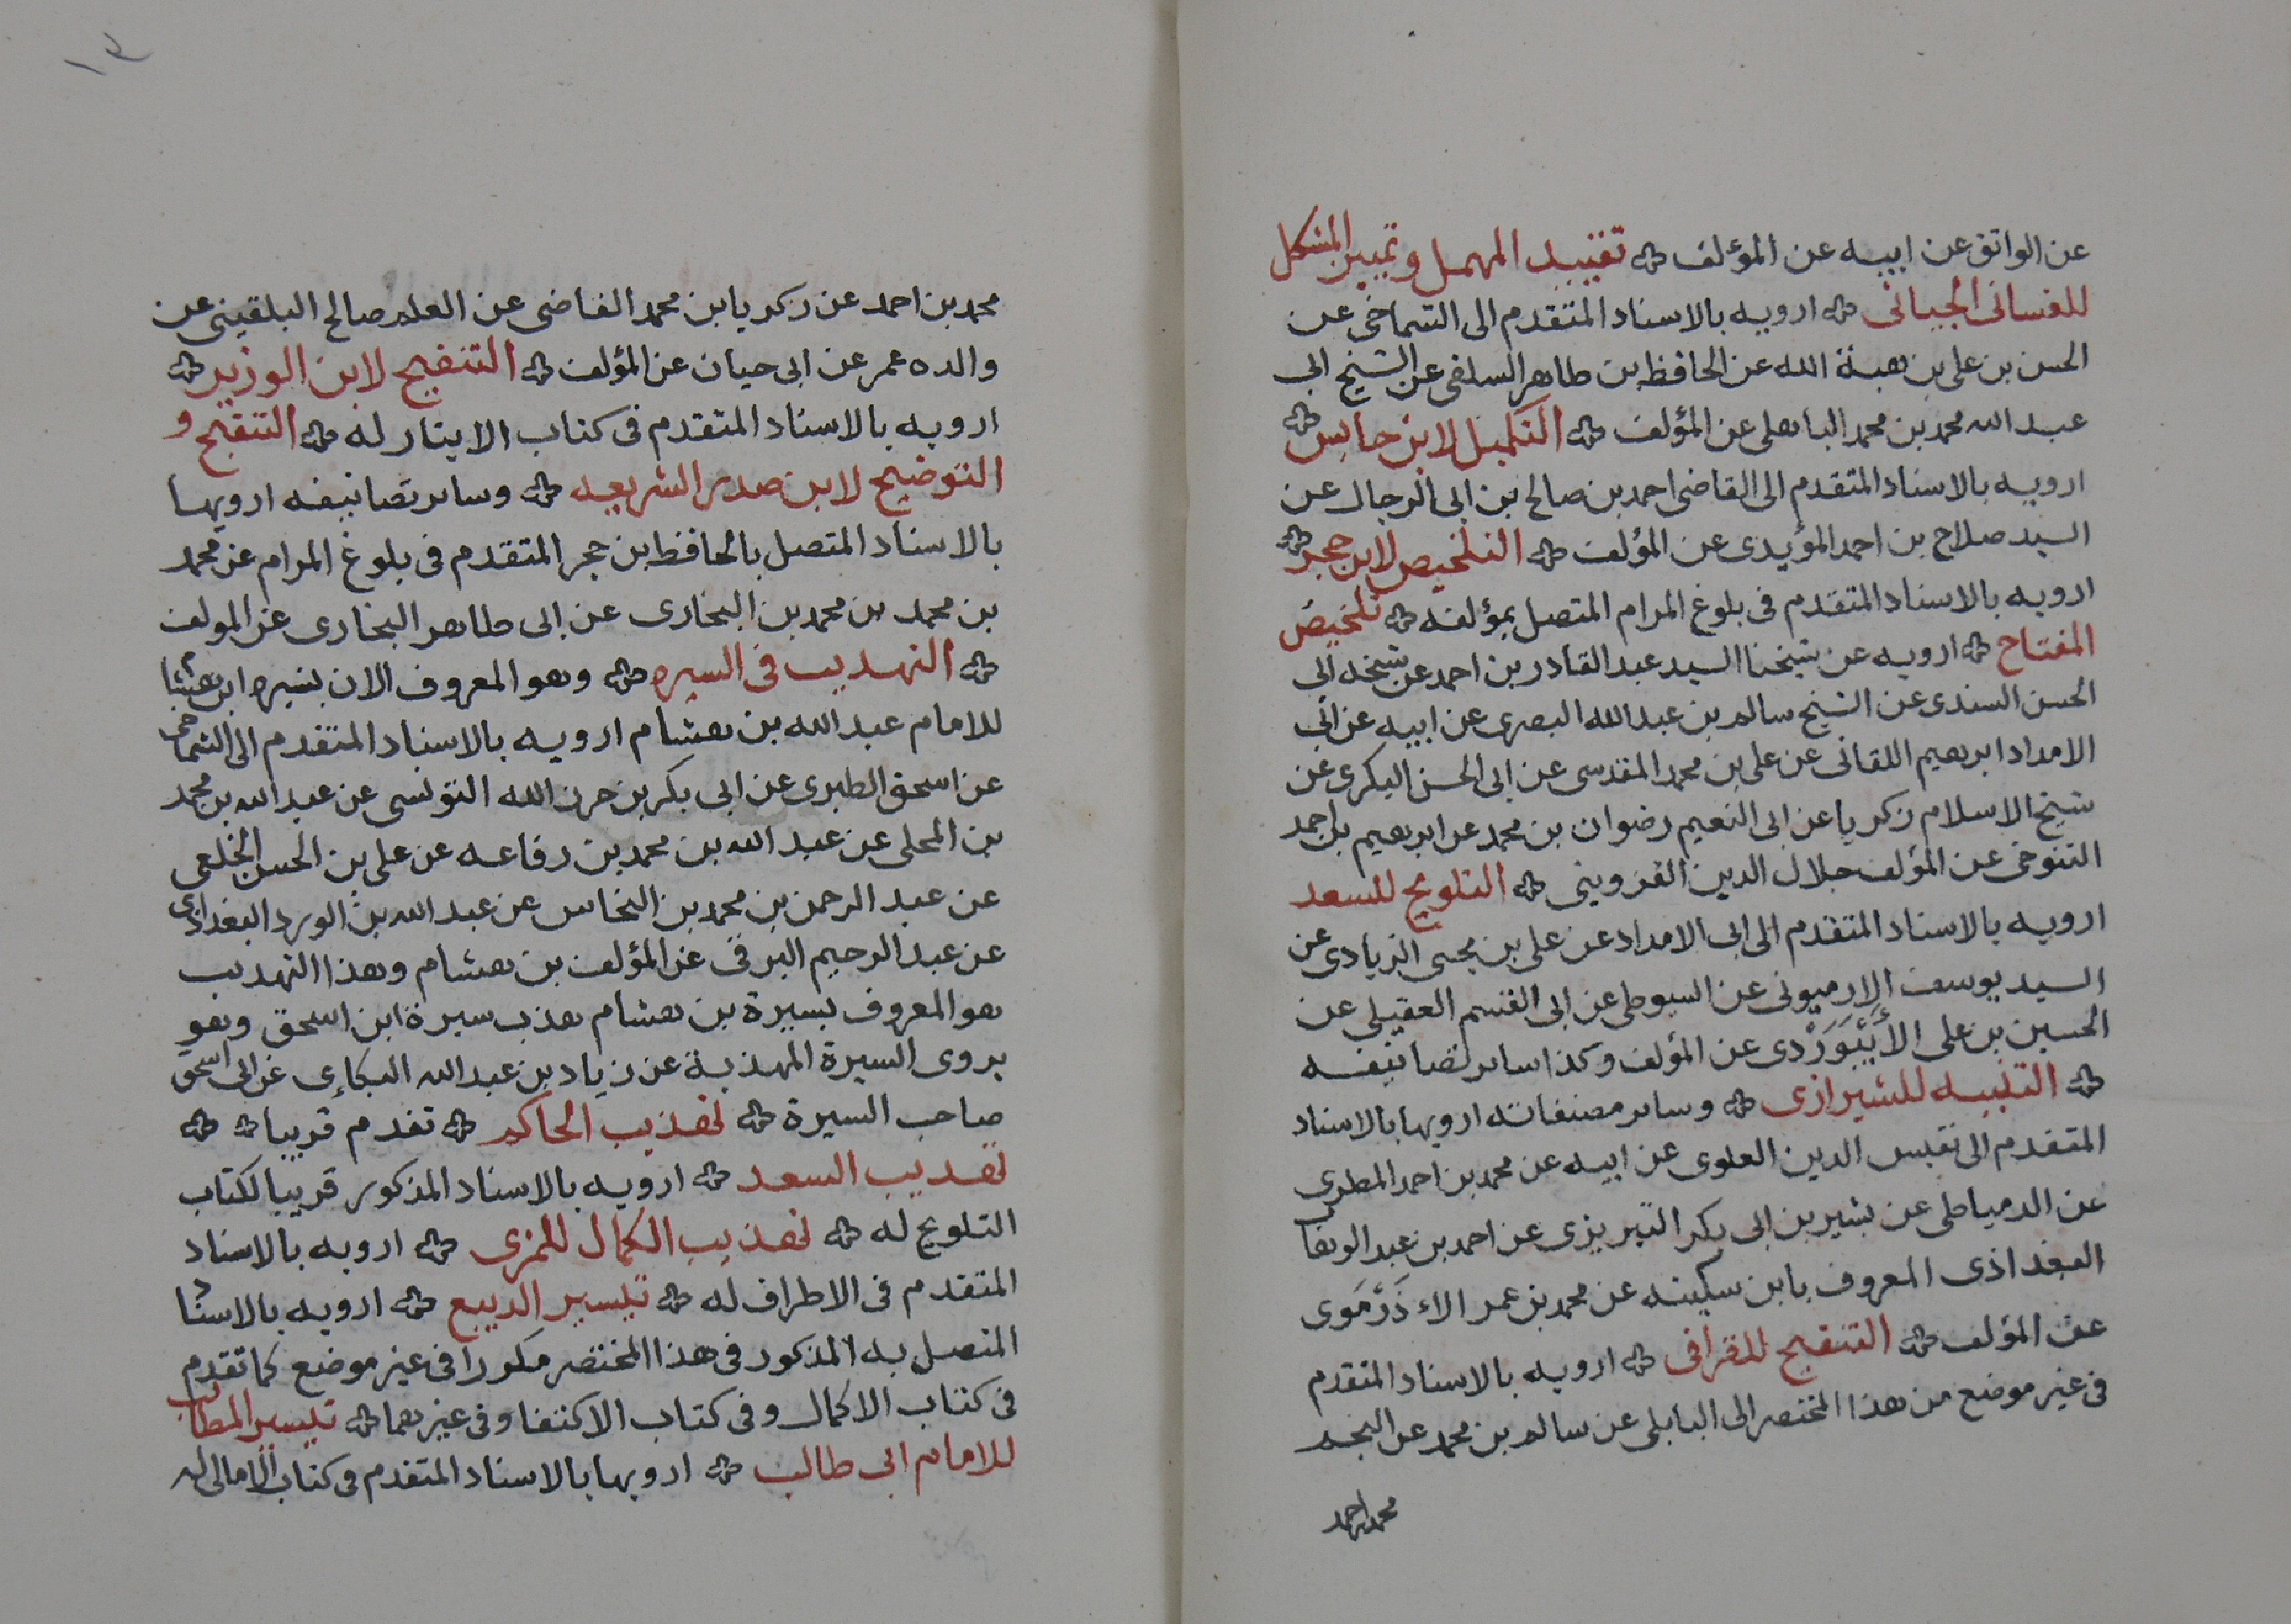 عن الواثق عن ابيه عن المؤلف ۞ تقييد المهمل وتمييز المشكل
للغسانى الجيانى ۞ ارويه بالاسناد المتقدم الى الشماخى عن
الحسن بن على بن هبة الله عن الحافظ بن طاهر السلفى عن الشيخ ابى
عبد الله محمد بن محمد الباهلى عن المؤلف ۞ التكميل لابن حابس ۞
ارويه بالاسناد المتقدم الى القاضى احمد بن صالح بن ابى الرجال عن
السيد صلاح بن احمد المؤيدى عن المؤلف ۞ التلخيص لابن حجر ۞
ارويه بالاسناد المتقدم فى بلوغ المرام المتصل بمؤلفه ۞ تلخيص
المفتاح ۞ ارويه عن شيخنا السيد عبد القادر بن احمد عن شيخه ابى
الحسن السندى عن الشيخ سالم بن عبد الله البصرى عن ابيه عن ابى
الامداد ابرهيم اللقانى عن على بن محمد المقدسى عن ابى الحسن البكرى عن
شيخ الاسلام زكريا عن ابى النعيم رضوان بن محمد عن ابرهيم بن احمد
التنوخى عن المؤلف جلال الدين القزوينى ۞ التلويح للسعد
ارويه بالاسناد المتقدم الى ابى الامداد عن على بن يحيى الزيادى عن
السيد يوسف الارميونى عن السيوطى عن ابى القسم العقيلى عن
الحسين بن على الأَبِيْوَرْدى عن المؤلف وكذا ساير تصانيفه
۞ التنبيه للشيرازى ۞ وساير مصنفاته ارويها بالاسناد
المتقدم الى نفيس الدين العلوى عن ابيه عن محمد بن احمد المطرى
عن الدمياطى عن بشير بن ابى بكر التبريزى عن احمد بن عبد الوهاب
البغداذى المعروف بابن سكينه عن محمد بن عمر الاءذَرْمَوى
عن المؤلف ۞ التنقيح للقرافى ۞ ارويه بالاسناد المتقدم
فى غير موضع من هذا المختصر الى البابلى عن سالم بن محمد عن النجم
محمد بن احمد
١٣
محمد بن احمد عن زكريا بن محمد القاضى عن العلم صالح البلقينى عن
والده عمر عن ابى حيان عن المؤلف ۞ التنقيح لابن الوزير ۞
ارويه بالاسناد المتقدم فى كتاب الايثار له ۞ التنقيح و
التوضيح لابن صدر الشريعه ۞ وساير تصانيفه ارويها
بالاسناد المتصل بالحافظ بن حجر المتقدم فى بلوغ المرام عن محمد
بن محمد بن محمد بن البخارى عن ابى طاهر البخارى عن المولف
۞ التهذيب فى السيره ۞ وهو المعروف الان بسيرة ابن هشام
للامام عبد الله بن هشام ارويه بالاسناد المتقدم الى الشماخى
عن اسحق الطبرى عن ابى بكر بن حرز الله التونسى عن عبد الله بن محمد
بن المحلى عن عبد الله بن محمد بن رفاعه عن على بن الحسن الخلعى
عن عبد الرحمن بن محمد بن النحاس عن عبد الله بن الورد البغدادى
عن عبد الرحيم البرقى عن المؤلف بن هشام وهذا التهذيب
هو المعروف بسيرة بن هشام هذب سيرة ابن اسحق وهو
يروى السيرة المهذبة عن زياد بن عبد الله البكاءى عن ابى اسحق
صاحب السيرة ۞ تهذيب الحاكم ۞ تقدم قريبا ۞ ۞
تهذيب السعد ۞ ارويه بالاسناد المذكور قريبا لكتاب
التلويح له ۞ تهذيب الكمال للمزى ۞ ارويه بالاسناد
المتقدم فى الاطراف له ۞ تيسير الديبع ۞ ارويه بالاسناد
المتصل به المذكور فى هذا المختصر مكررا فى غير موضع كما تقدم
فى كتاب الاكمال وفى كتاب الاكتفا وفى غيرهما ۞ تيسير المطالب
للامام ابى طالب ۞ ارويها بالاسناد المتقدم فى كتاب الامالى له